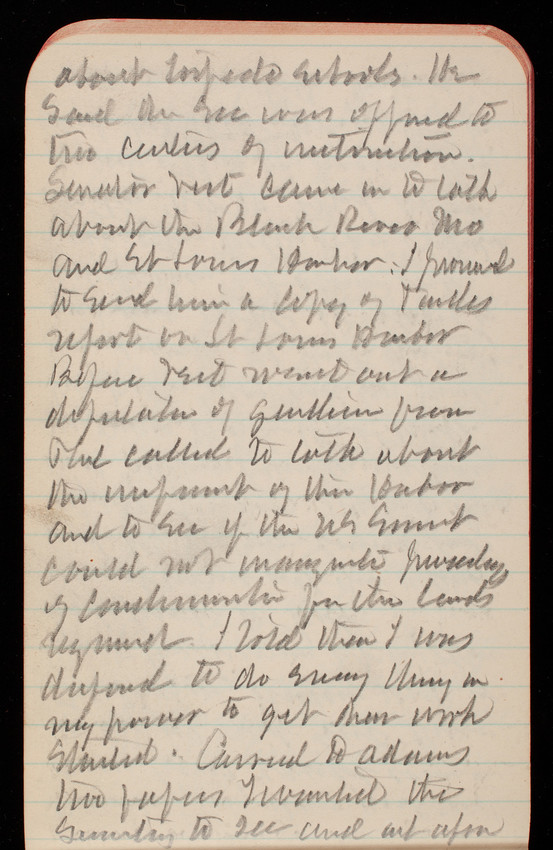 about torpedo schools. He
said the Sec was opposed to
two centers of instruction.
Senator Vest came in to talk
about the Black River Mo
and St Louis Harbor. I promised
to send him a copy of
report on St Louis Harbor
Before Vest went out a
deputation of gentlemen from
called to talk about
the improvement of their Harbor
and to see if the US Govmt
could not inaugurate proceedings
of condemnation for the lands
required. I told them I was
disposed to do every thing in
my power to get their work
started. Carried to Adams
two papers I wanted the
Secretary to see and act upon